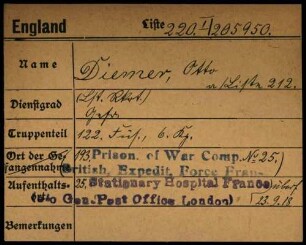 England Liste 220.I/205950.
Name Diemer, Otto
a/Liste 212.
Dienstgrad (Lst. Rkrt.)
Gefr.
Truppenteil 122. Füs., 6. Kg.
Ort der Gefangennahme Prison. of War Comp. No 25.)
British, Expedit. Force
Aufenthalts- 25. Stationary Hospital France
(c/o Gen. Post Office London) 13.9.18
Bemerkungen